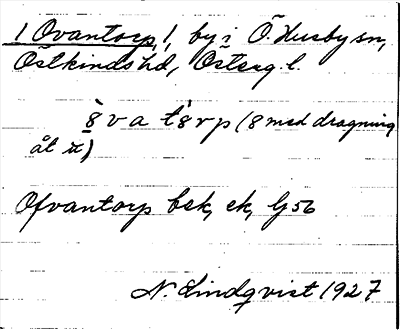 1 Ovantorp, 1, by i Ö. Husby sn,
Östkinds hd, Östergl.
8̀va t8́rp (8 med dragning
åt u)
Ofvantorp bsk, ek, lj 56
N. Lindqvist 1927